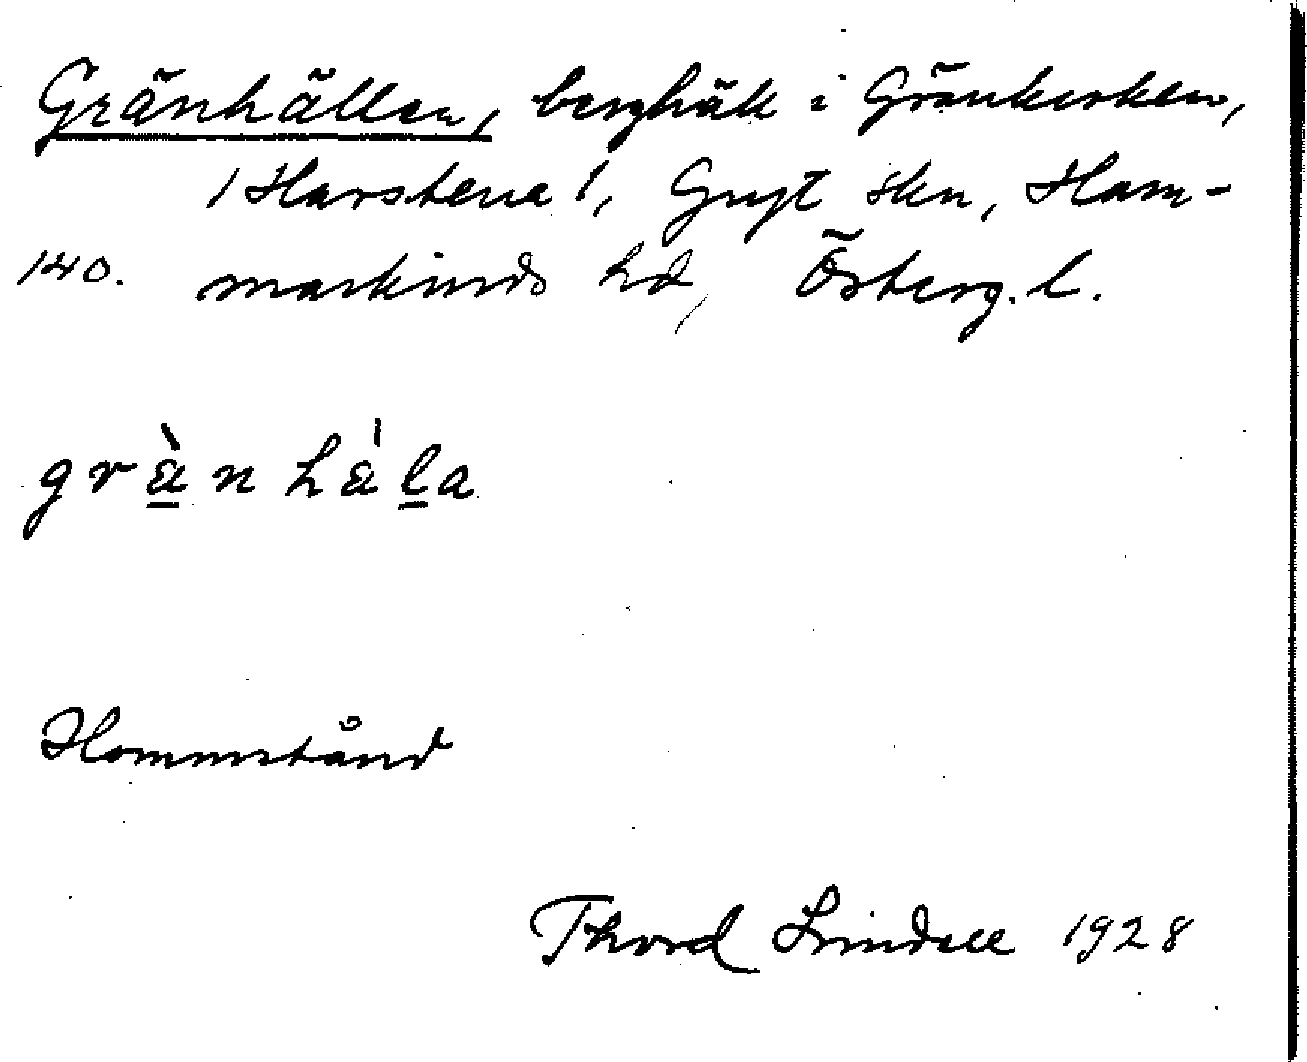 Gränhällen, berghäll i Gränkirken,
/ Harstena /, Gryt skn, Ham-
140. markinds hd, Österg. l.
grä̀n hä̀la
Hommstånd
Thord Lindell 1928